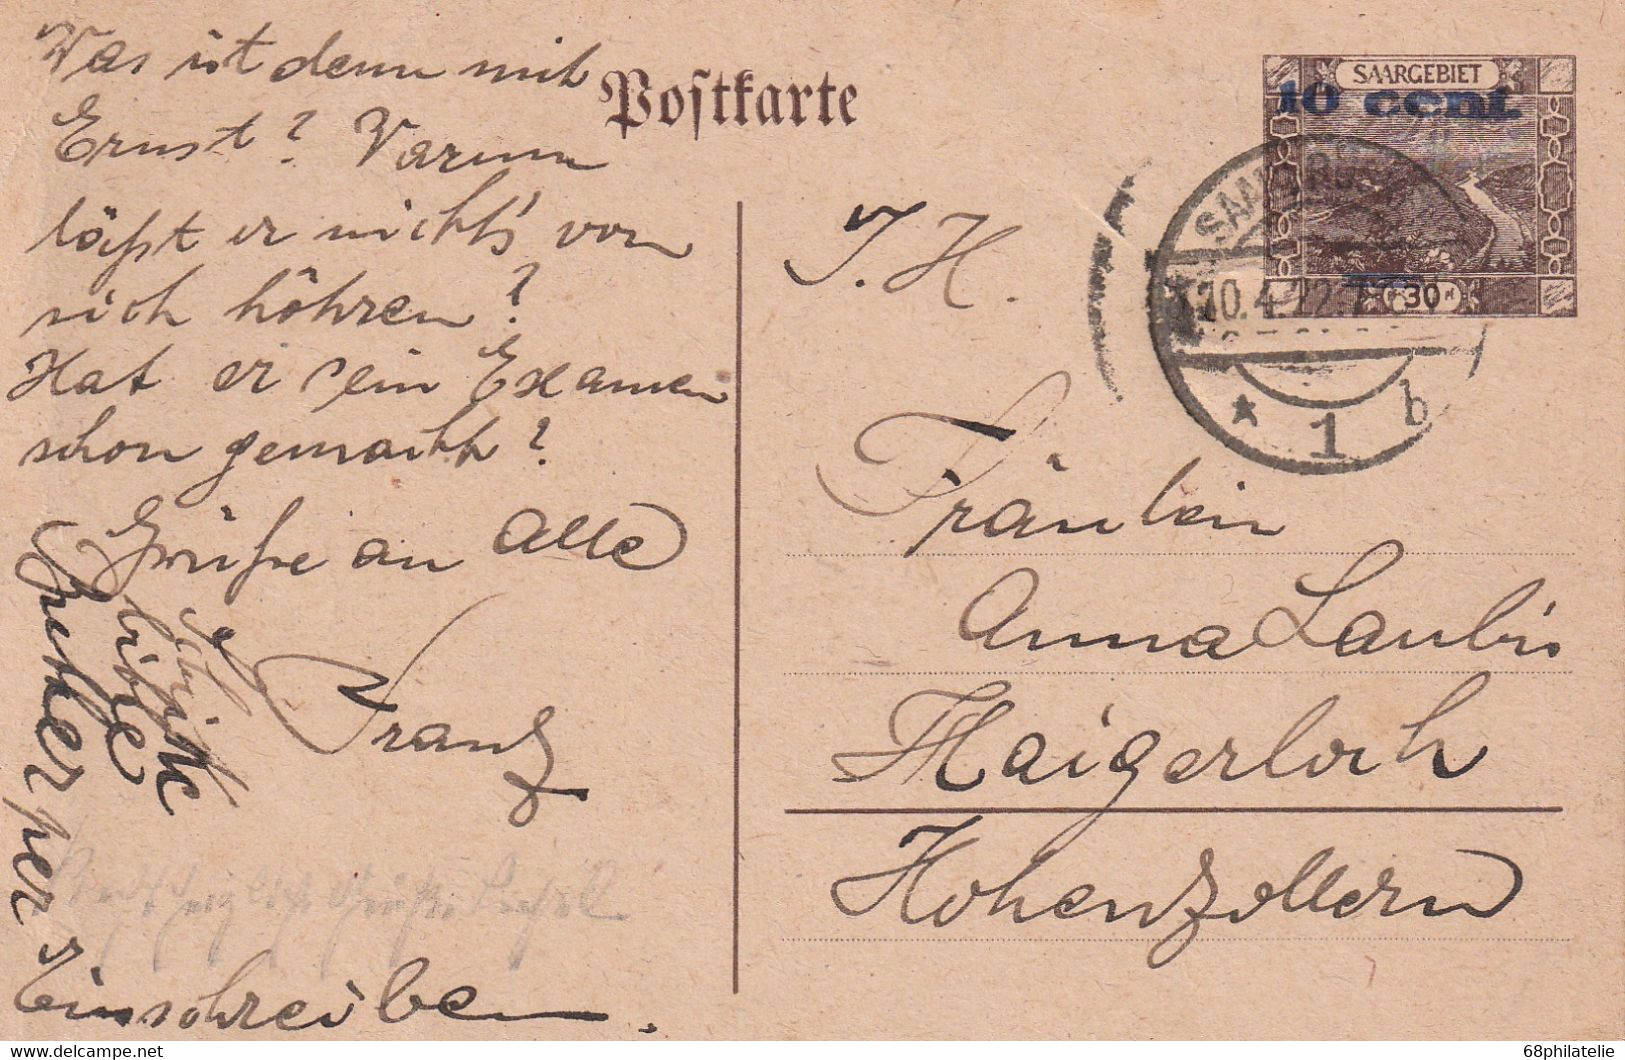 Was ist denn mit
Ernst? Warum
läßt er nichts von
sich höhren?
Hat er sein Examen
schon gemacht?
Grüße an alle
Franz
per
Einschreiben.
Postkarte
SAARGEBIET
10 cent.
30
20.4.22.7
* 1 b
J. H.
Fräulein
Anna Laubis
Haigerloch
Hohenzollern
68philatelie